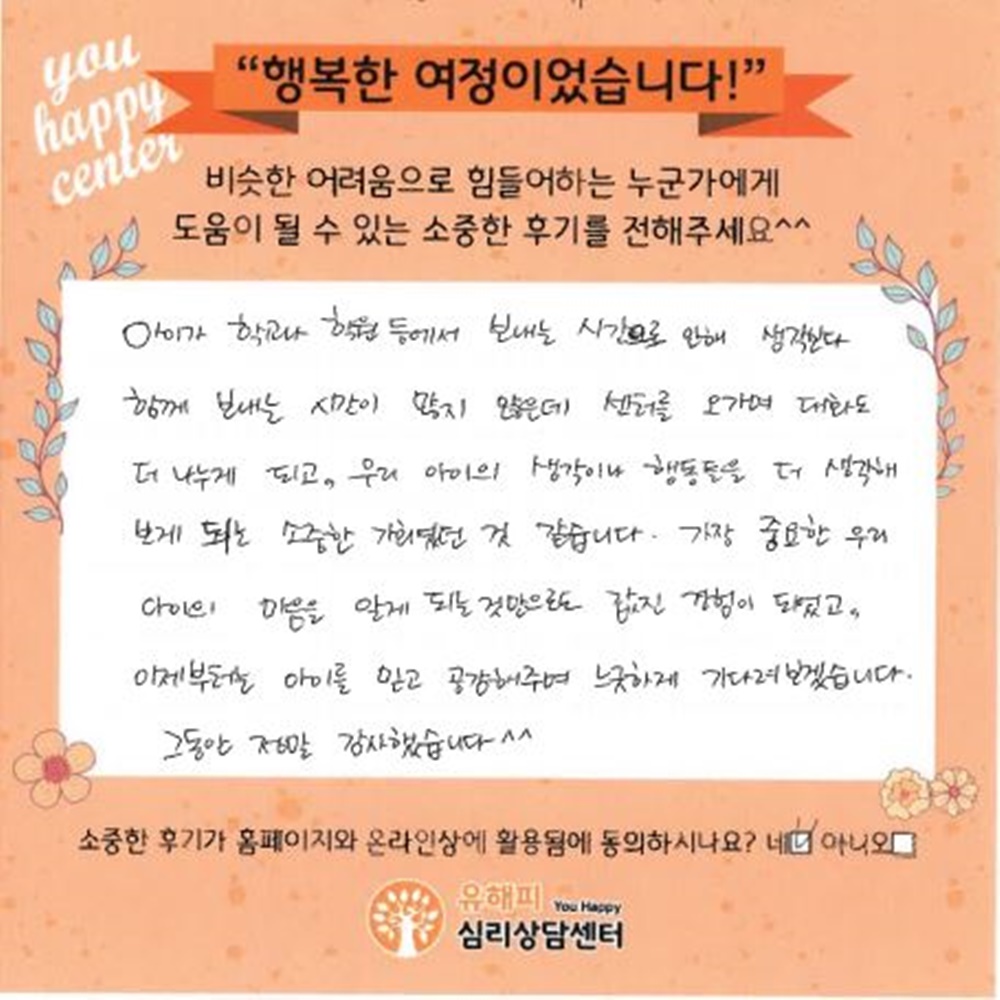 you
happy
center
“행복한 여정이었습니다!”
비슷한 어려움으로 힘들어하는 누군가에게
도움이 될 수 있는 소중한 후기를 전해주세요^^
아이가 학교나 학원 등에서 보내는 시간으로 인해 생각만큼
함께 보내는 시간이 많지 않은데 센터를 오가며 대화도
더 나누게 되고, 우리 아이의 생각이나 행동들을 더 생각해
보게 되는 소중한 기회였던 것 같습니다. 가장 중요한 우리
아이의 마음을 알게 되는것만으로도 값진 경험이 되었고,
이제부터는 아이를 믿고 공감해주며 느긋하게 기다려보겠습니다.
그동안 정말 감사했습니다^^
소중한 후기가 홈페이지와 온라인상에 활용됨에 동의하시나요? 네 아니오
유해피 You Happy
심리상담센터